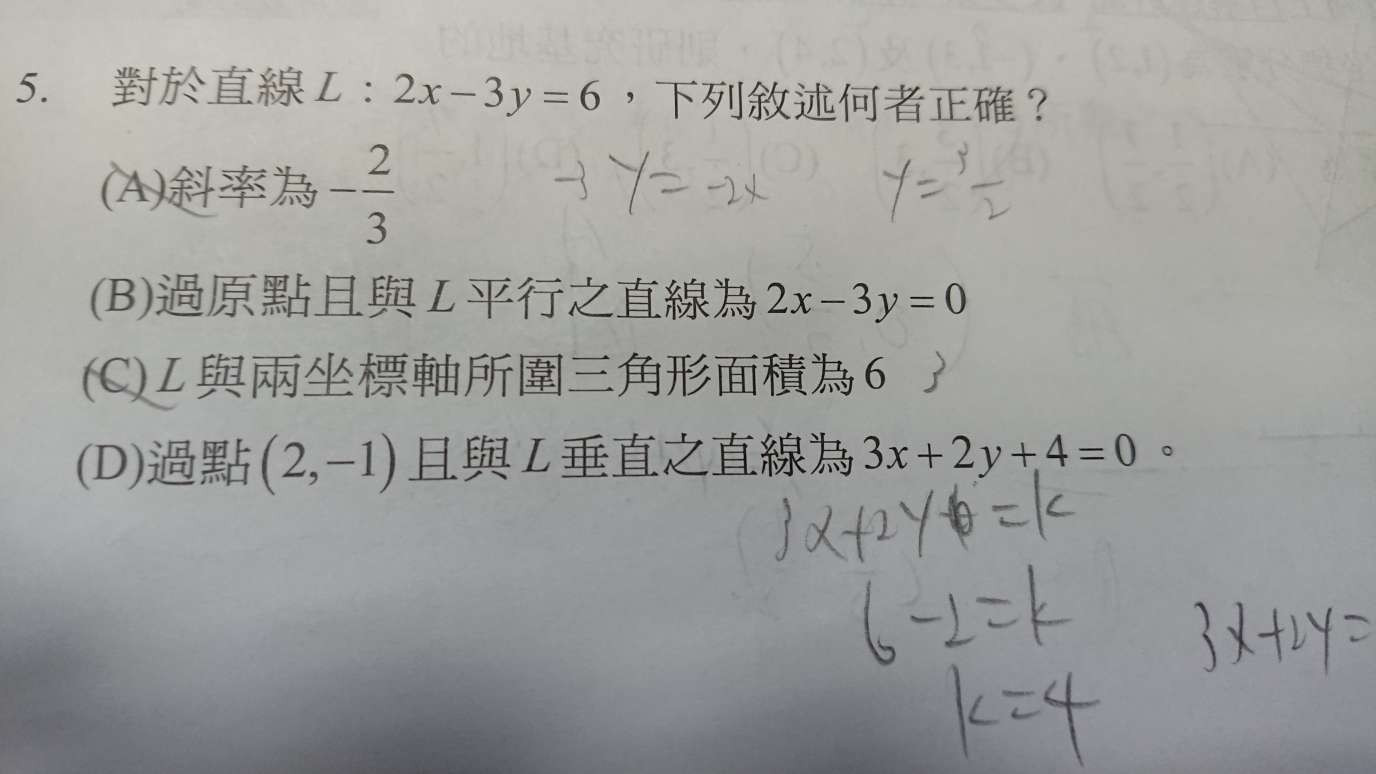 5. 對於直線 L：2x－3y＝6，下列敘述何者正確？
(A)斜率為 －2/3
-3 y = -2x
y = 3/2
(B)過原點且與 L 平行之直線為 2x－3y＝0
(C) L 與兩坐標軸所圍三角形面積為 6
3
(D)過點 (2,－1) 且與 L 垂直之直線為 3x＋2y＋4＝0。
3x+2y = k
6-2=k
3x+2y=
k=4